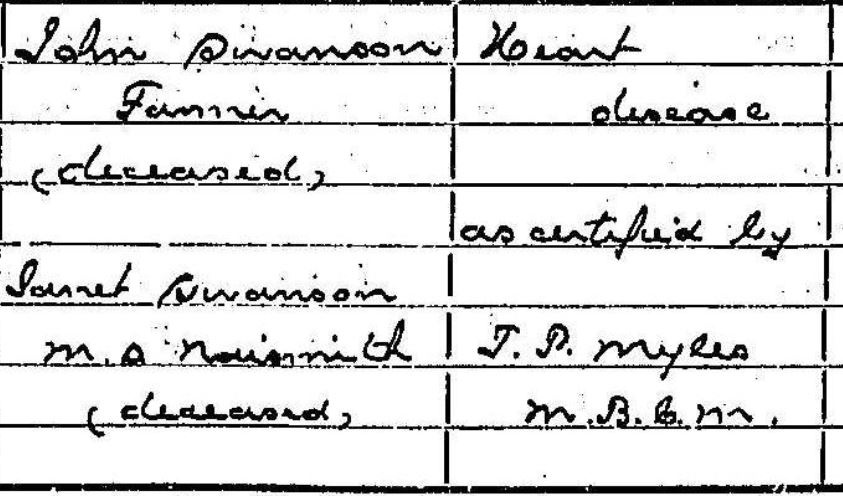 John Swanson
Farmer
(deceased)
Janet Swanson
m.s Naismith
(deceased)
Heart
disease
as certified by
T. P. Myles
M.B.C.M.